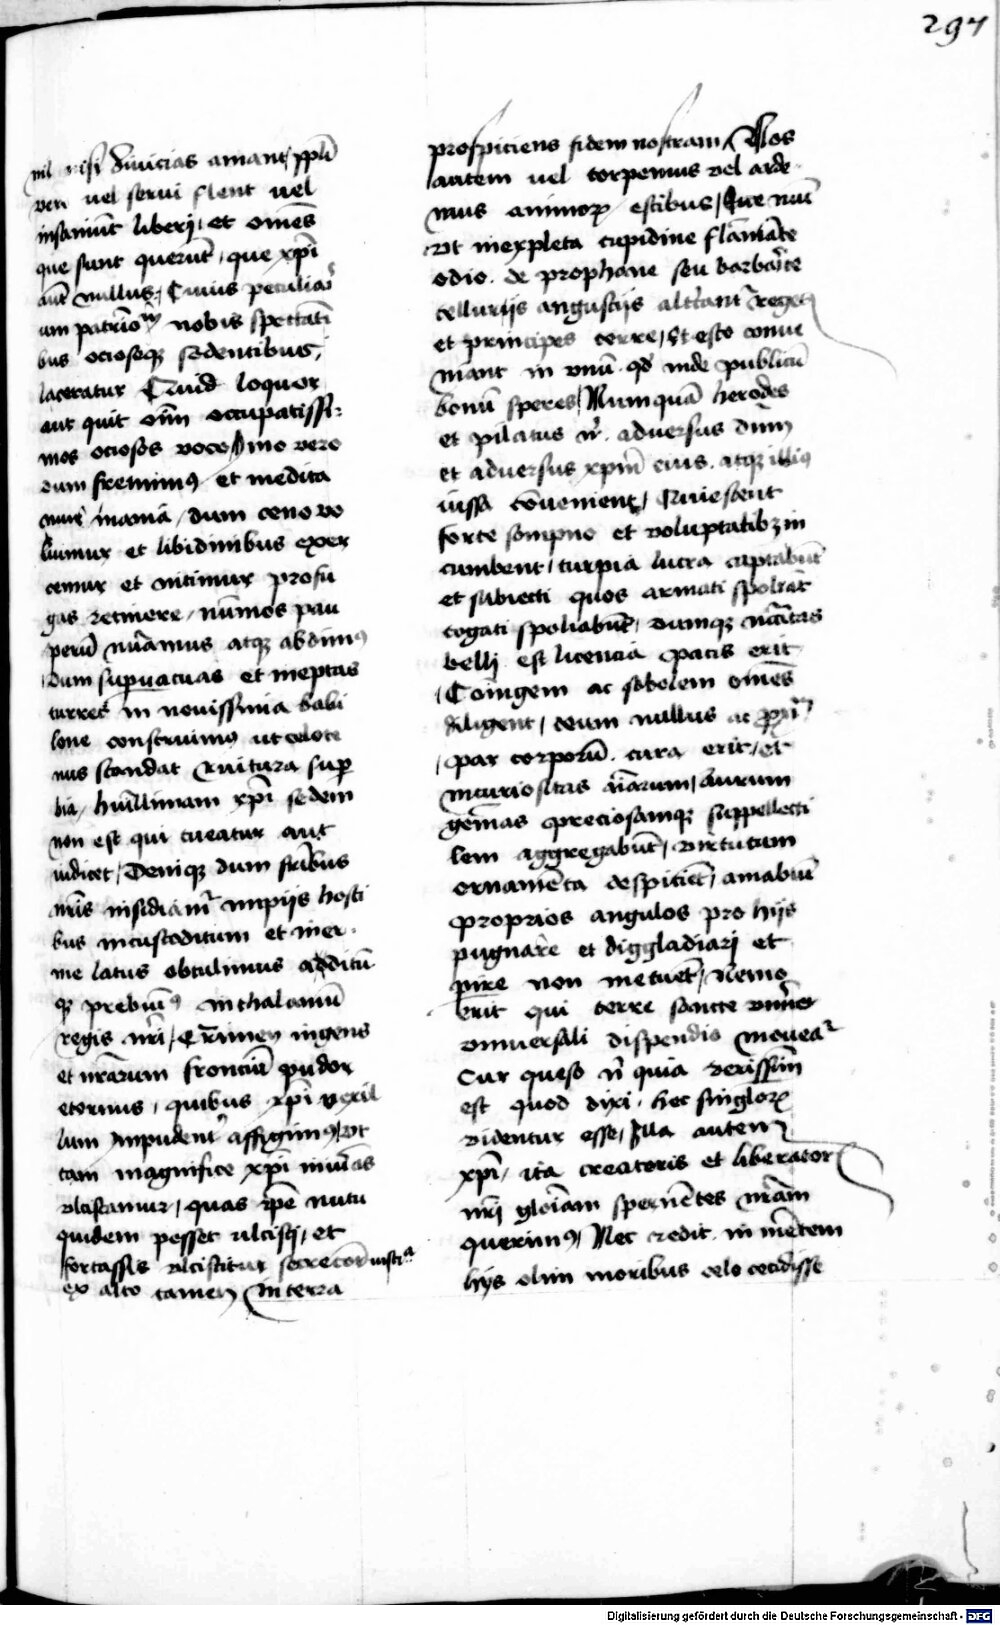 297
nil nisi diuicias amant, ppli
vero uel serui flent uel
insaniut liberi, et omes
que sunt querut, que xpi
aut nullus, Cuius peculia
um patrioium nobis spectati
bus ocioseqz sedentibus,
laceratur Quid loquor
aut quit oim occupatissi=
mos ociosos voco Imo vero
dum fremimus et medita
mur inania, dum ceno vo
luimur et libidinibus exer
cemur et nitimur profu
gas retinere, numos pau
peru nuamus atqz abdimus
dum supuacuas et ineptas
turres in nouissima babi
lone construimus ut celote
nus scandat ruitura sup
bia, humillimam xpi sedem
non est qui tueatur aut
uidicet, Deniqz dum fribus
nris insidiamur impijs hosti
bus incustoditum et iner
me latus obtulimus additu
qz prebuimus in thalamu
regis nri, Crimen ingens
et nrarum frontiu pudor
eternus, quibus xpi vexil
lum impudenter affigimus, Vt
tam magnifice xpi iniurias
ulciscamur, quas ipe nutu
quidem posset ulcisci, et
fortassis ulciscitur secretori iusticia
ex alto tamen in terra
prospiciens fidem nostram, Nos
autem uel torpemus vel arde
mus animorum estibus, Que nuc
vt inexpleta cupidine flamate
odio de prophane seu barbarice
tellurijs angustijs altercantur reges
et principes terre, Et esto conue
niant in vnu qd inde publicu
bonu speres, Numqua herodes
et pilatus nr adversus dnm
et adversus xpm eius atqz illius
iussa conuenient, Quiescent
forte sompno et voluptatibz in
cumbent, turpia lucra captabut
et subiecti quos armati spoliat
togati spoliabut, dumqz nccitas
belli est licencia pacis erit
Coiugem ac sobolem omes
diligent, ceum nullus ac
par corporu cura erit, et
incuriositas aiarum, Aurum
gemas preciosamqz suppellecti
lem aggregabut, virtutum
ornameta despiciet, amabut
proprios angulos pro hijs
pugnare et diggladiari et
pire non metuet, Nemo
erit qui terre sancte
vniuersali dispendio moueatur
Cur queso nr quia verissim
est quod dixi, hec singlorum
videntur esse, Illa autem
xpi, ita creatoris et liberator
nri gloiam spernetes nram
querimus, Nec credit in metem
hijs olim moribus celo cecidisse
Digitalisierung gefördert durch die Deutsche Forschungsgemeinschaft - DFG